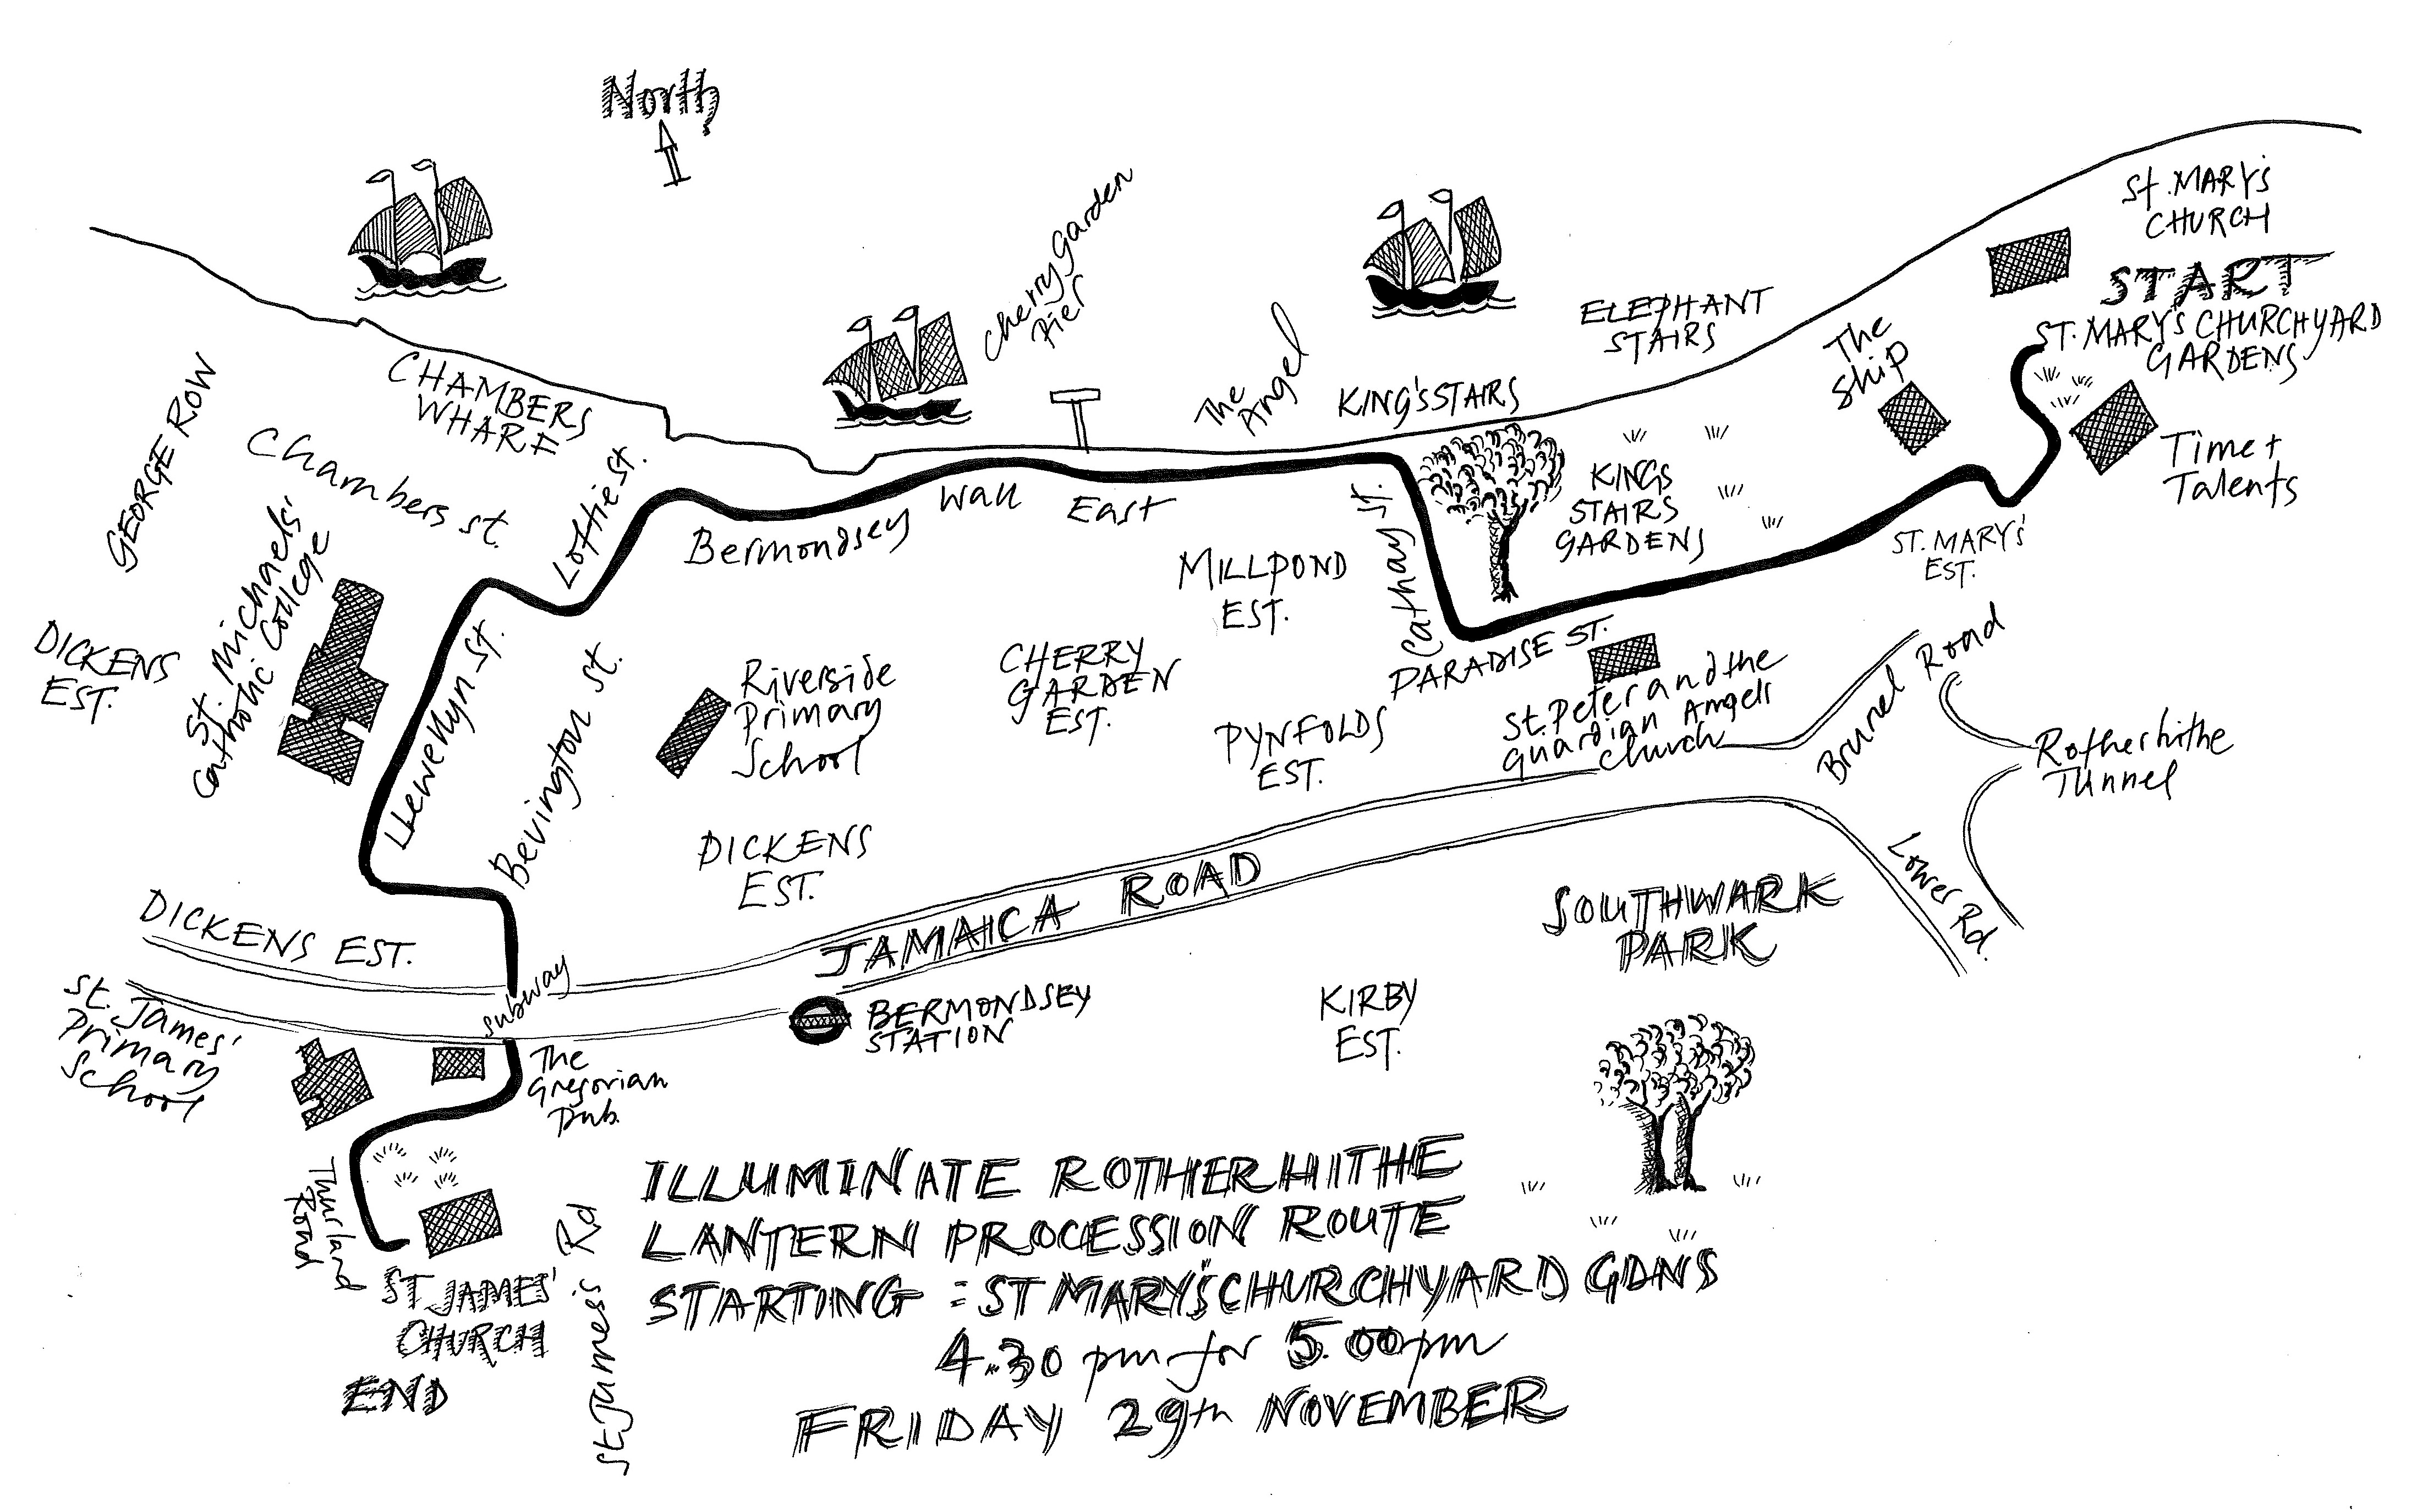 North
St. MARY'S
CHURCH
START
ST. MARY'S CHURCHYARD
GARDENS
The
Ship
Time +
Talents
ELEPHANT
STAIRS
KING'S STAIRS
The
Angel
Cherry Garden
Pier
CHAMBERS
WHARF
GEORGE ROW
Chambers St.
Loftie St.
Bermondsey Wall East
Cathay St.
KINGS
STAIRS
GARDENS
ST. MARY'S
EST.
MILLPOND
EST.
St. Michaels'
Catholic College
DICKENS
EST.
Llewellyn St.
Bevington St.
Riverside
Primary
School
CHERRY
GARDEN
EST.
PARADISE ST.
St. Peter and the
Guardian Angels
Church
PYNFOLDS
EST.
Brunel Road
Rotherhithe
Tunnel
Lower Rd.
DICKENS
EST.
JAMAICA ROAD
SOUTHWARK
PARK
DICKENS EST.
Subway
St. James'
Primary
School
BERMONDSEY
STATION
KIRBY
EST.
The
Gregorian
Pub.
Thurland
Road
ST JAMES'
CHURCH
END
St. James's Rd
ILLUMINATE ROTHERHITHE
LANTERN PROCESSION ROUTE
STARTING = ST MARY'S CHURCHYARD GDNS
4.30 pm for 5.00pm
FRIDAY 29th NOVEMBER